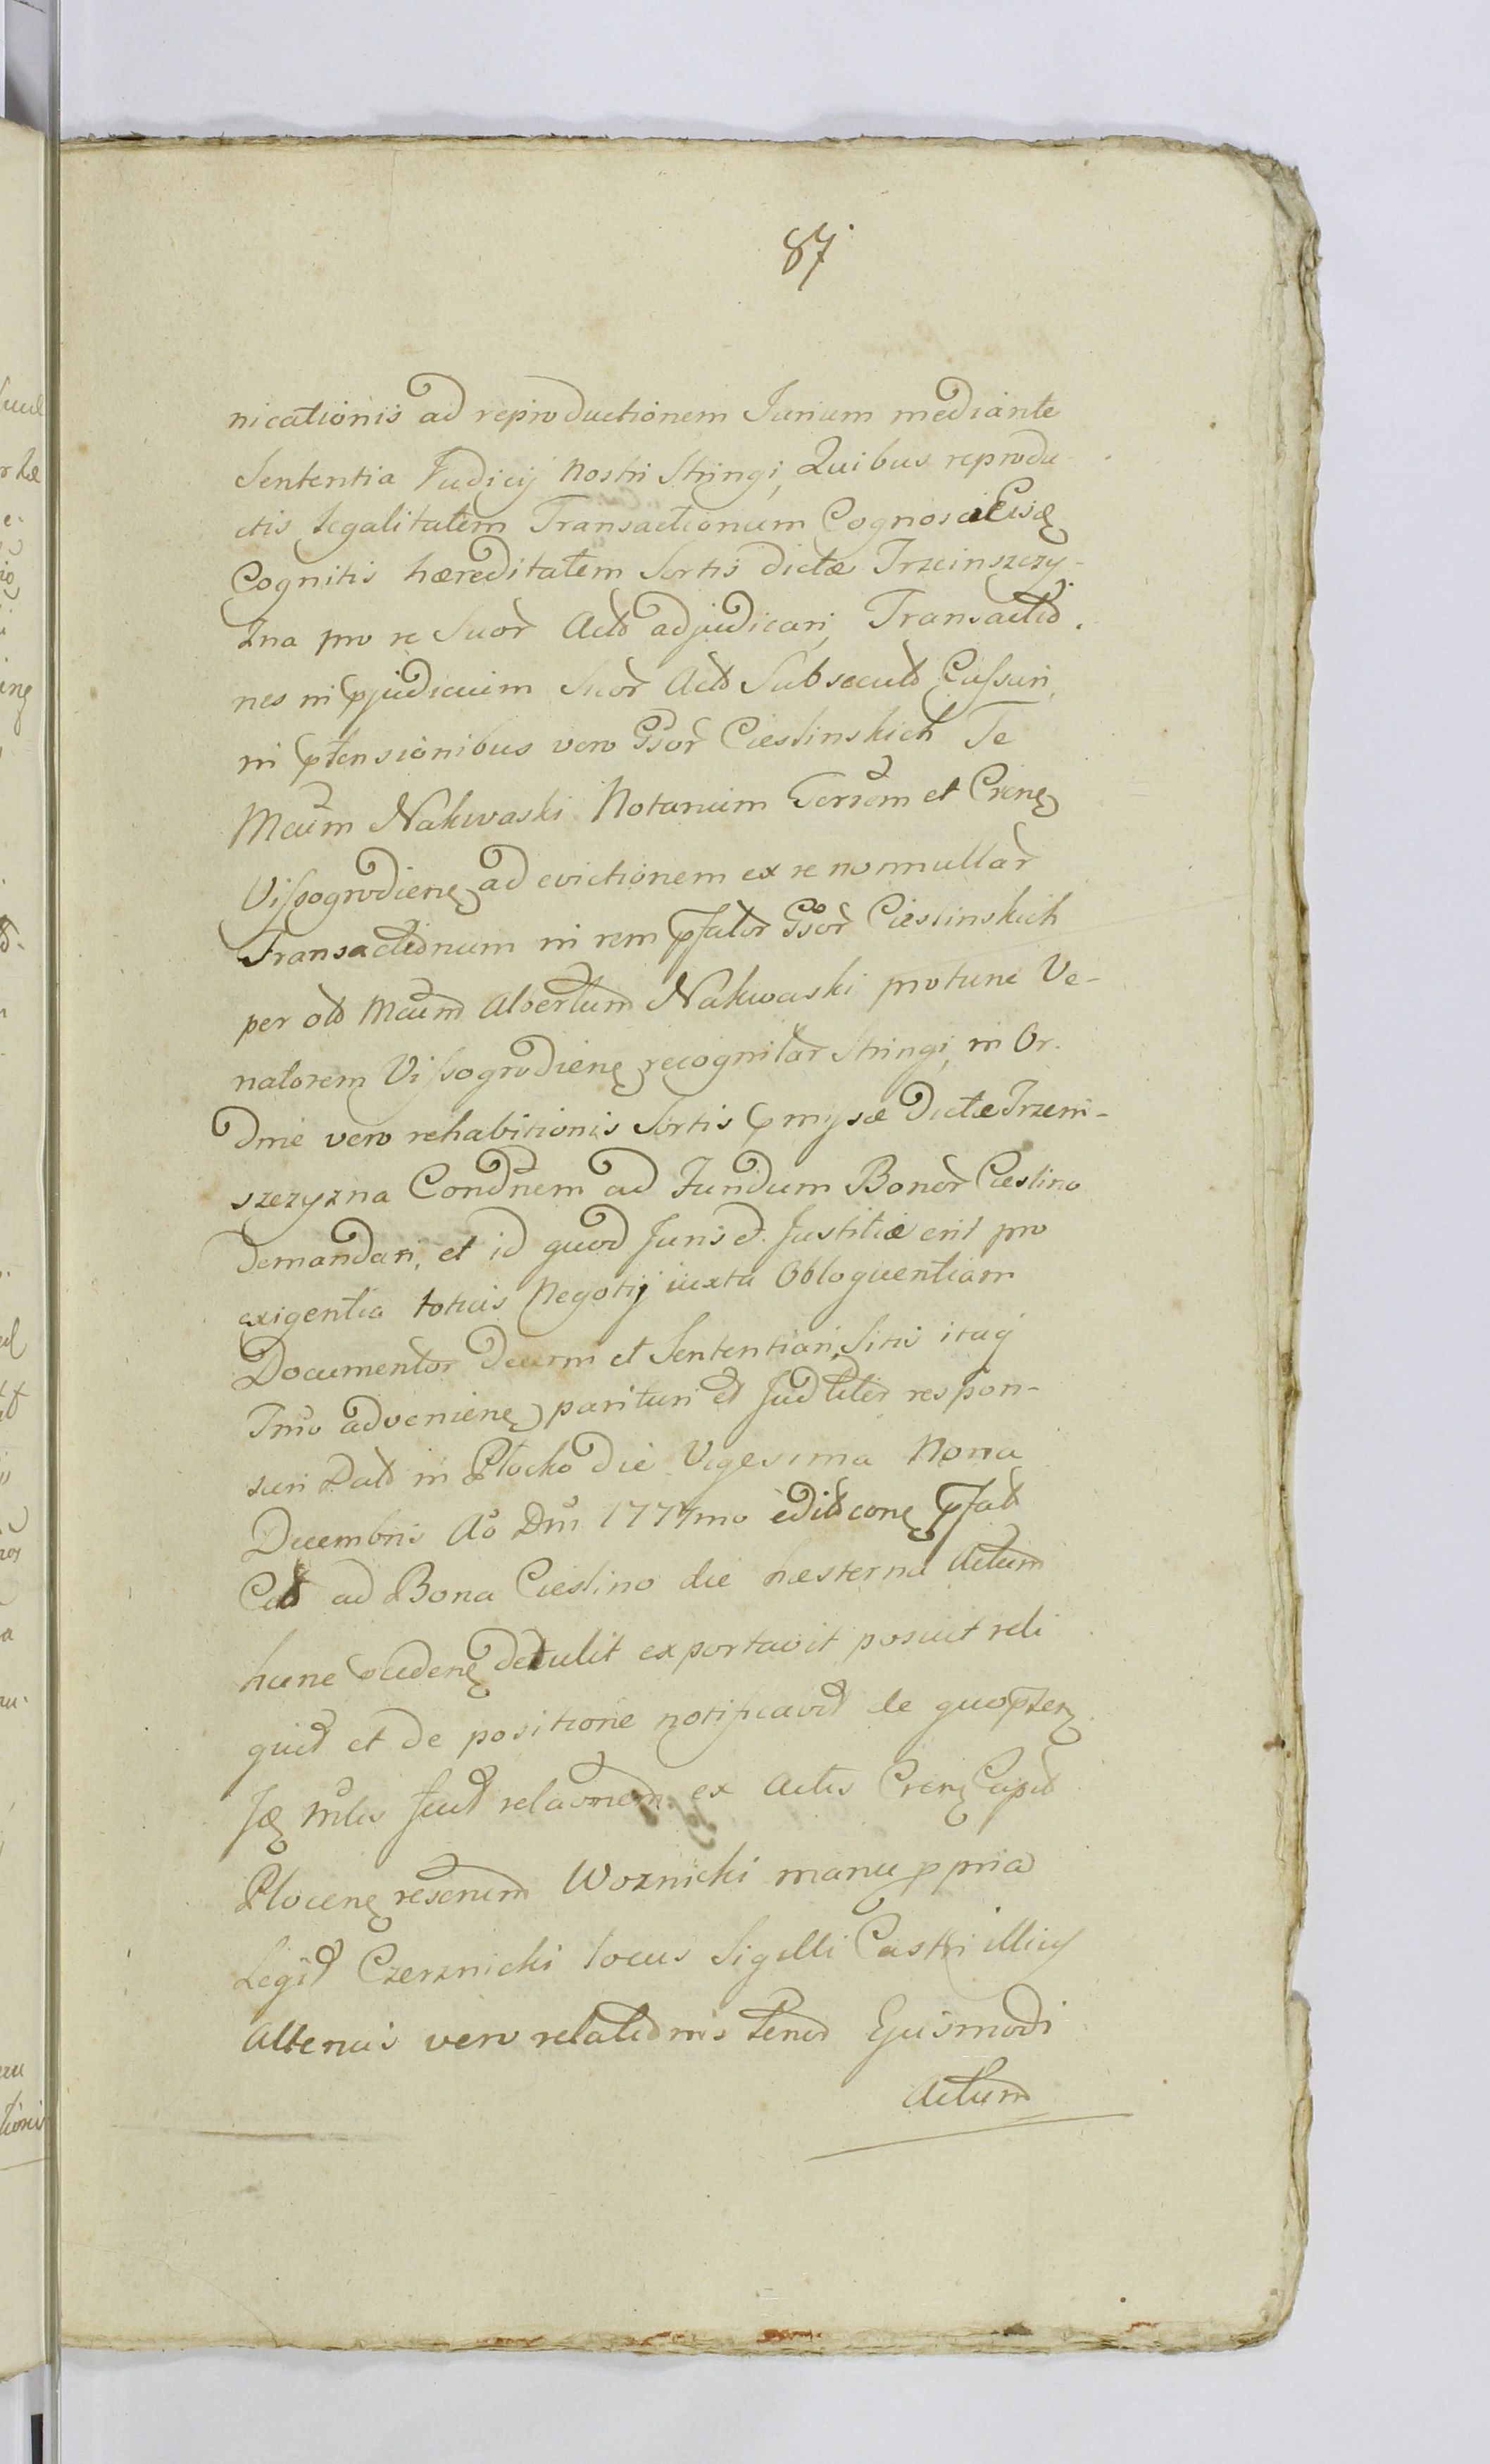 87
nicationis ad reproductionem Jurium mediante
Sententia Judicij Nostri Stringi, Quibus reprodu-
ctis Legalitatem Transactionum Cognosci Eisq
Cognitis hæreditatem Sortis dictæ Trzcinszczy-
zna pro re Suor Actor adjudicari, Transactio-
nes in pjudicium Suor Actor Subsecut Cassari,
in ptensionibus vero Gsor Cieslinskich Te
Mcum Nakwaski Notarium Terrem et Crene
Vissogrodiene ad evictionem ex re nonnullar
Transactionum in rem pfator Gsor Cieslinskich
per ol Mcum Albertum Nakwaski protunc Ve-
natorem Vissogrodiene recognitar Stringi, in Or-
dine vero rehabitionis Sortis pmissæ dictæ Trzcin-
szczyzna Condnem ad Fundum Bonor Cieslino
Demandari, et id quod Juris et Justitiæ erit pro
exigentia totius Negotij iuxta Obloquentiam
Documentor Decerni et Sententiari, Sitis itaq
Tmo adveniene parituri et Judliter respon-
suri Dat in Plocko die Vigesima Nona
Decembris Ao Dni 1777mo edit cone pfat
Cit ad Bona Cieslino die hesterna Actum
hunc pcedene detulit exportavit posuit reli
quit et de positione notificavit de quo pfen
Jq mlis fecit relaonem ex Actis Cren Capit
Plocene rescriptum Woznicki manu ppria
Legit Czerznicki Locus Sigilli Castri illius
Alterius vero relationis tenor Ejusmodi
Actum